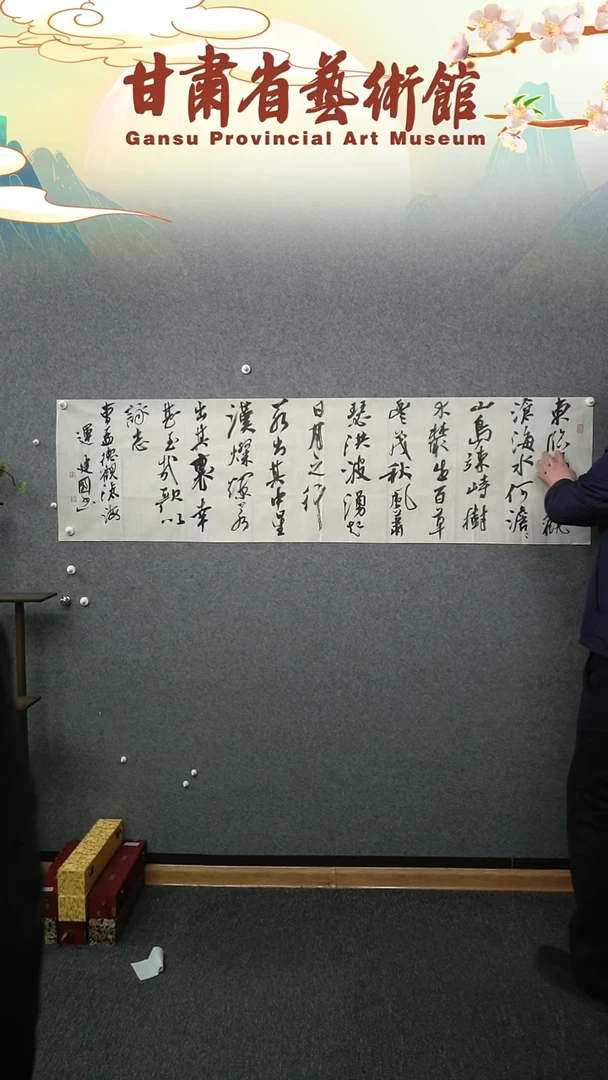 甘肅省藝術館
Gansu Provincial Art Museum
東臨觀
滄海水何澹澹
山島竦峙樹
木叢生百草
豐茂秋風蕭
瑟洪波湧起
日月之行
若出其中星
漢燦爛若
出其裏幸
甚至哉歌以
詠志
曹孟德觀滄海
運建國書